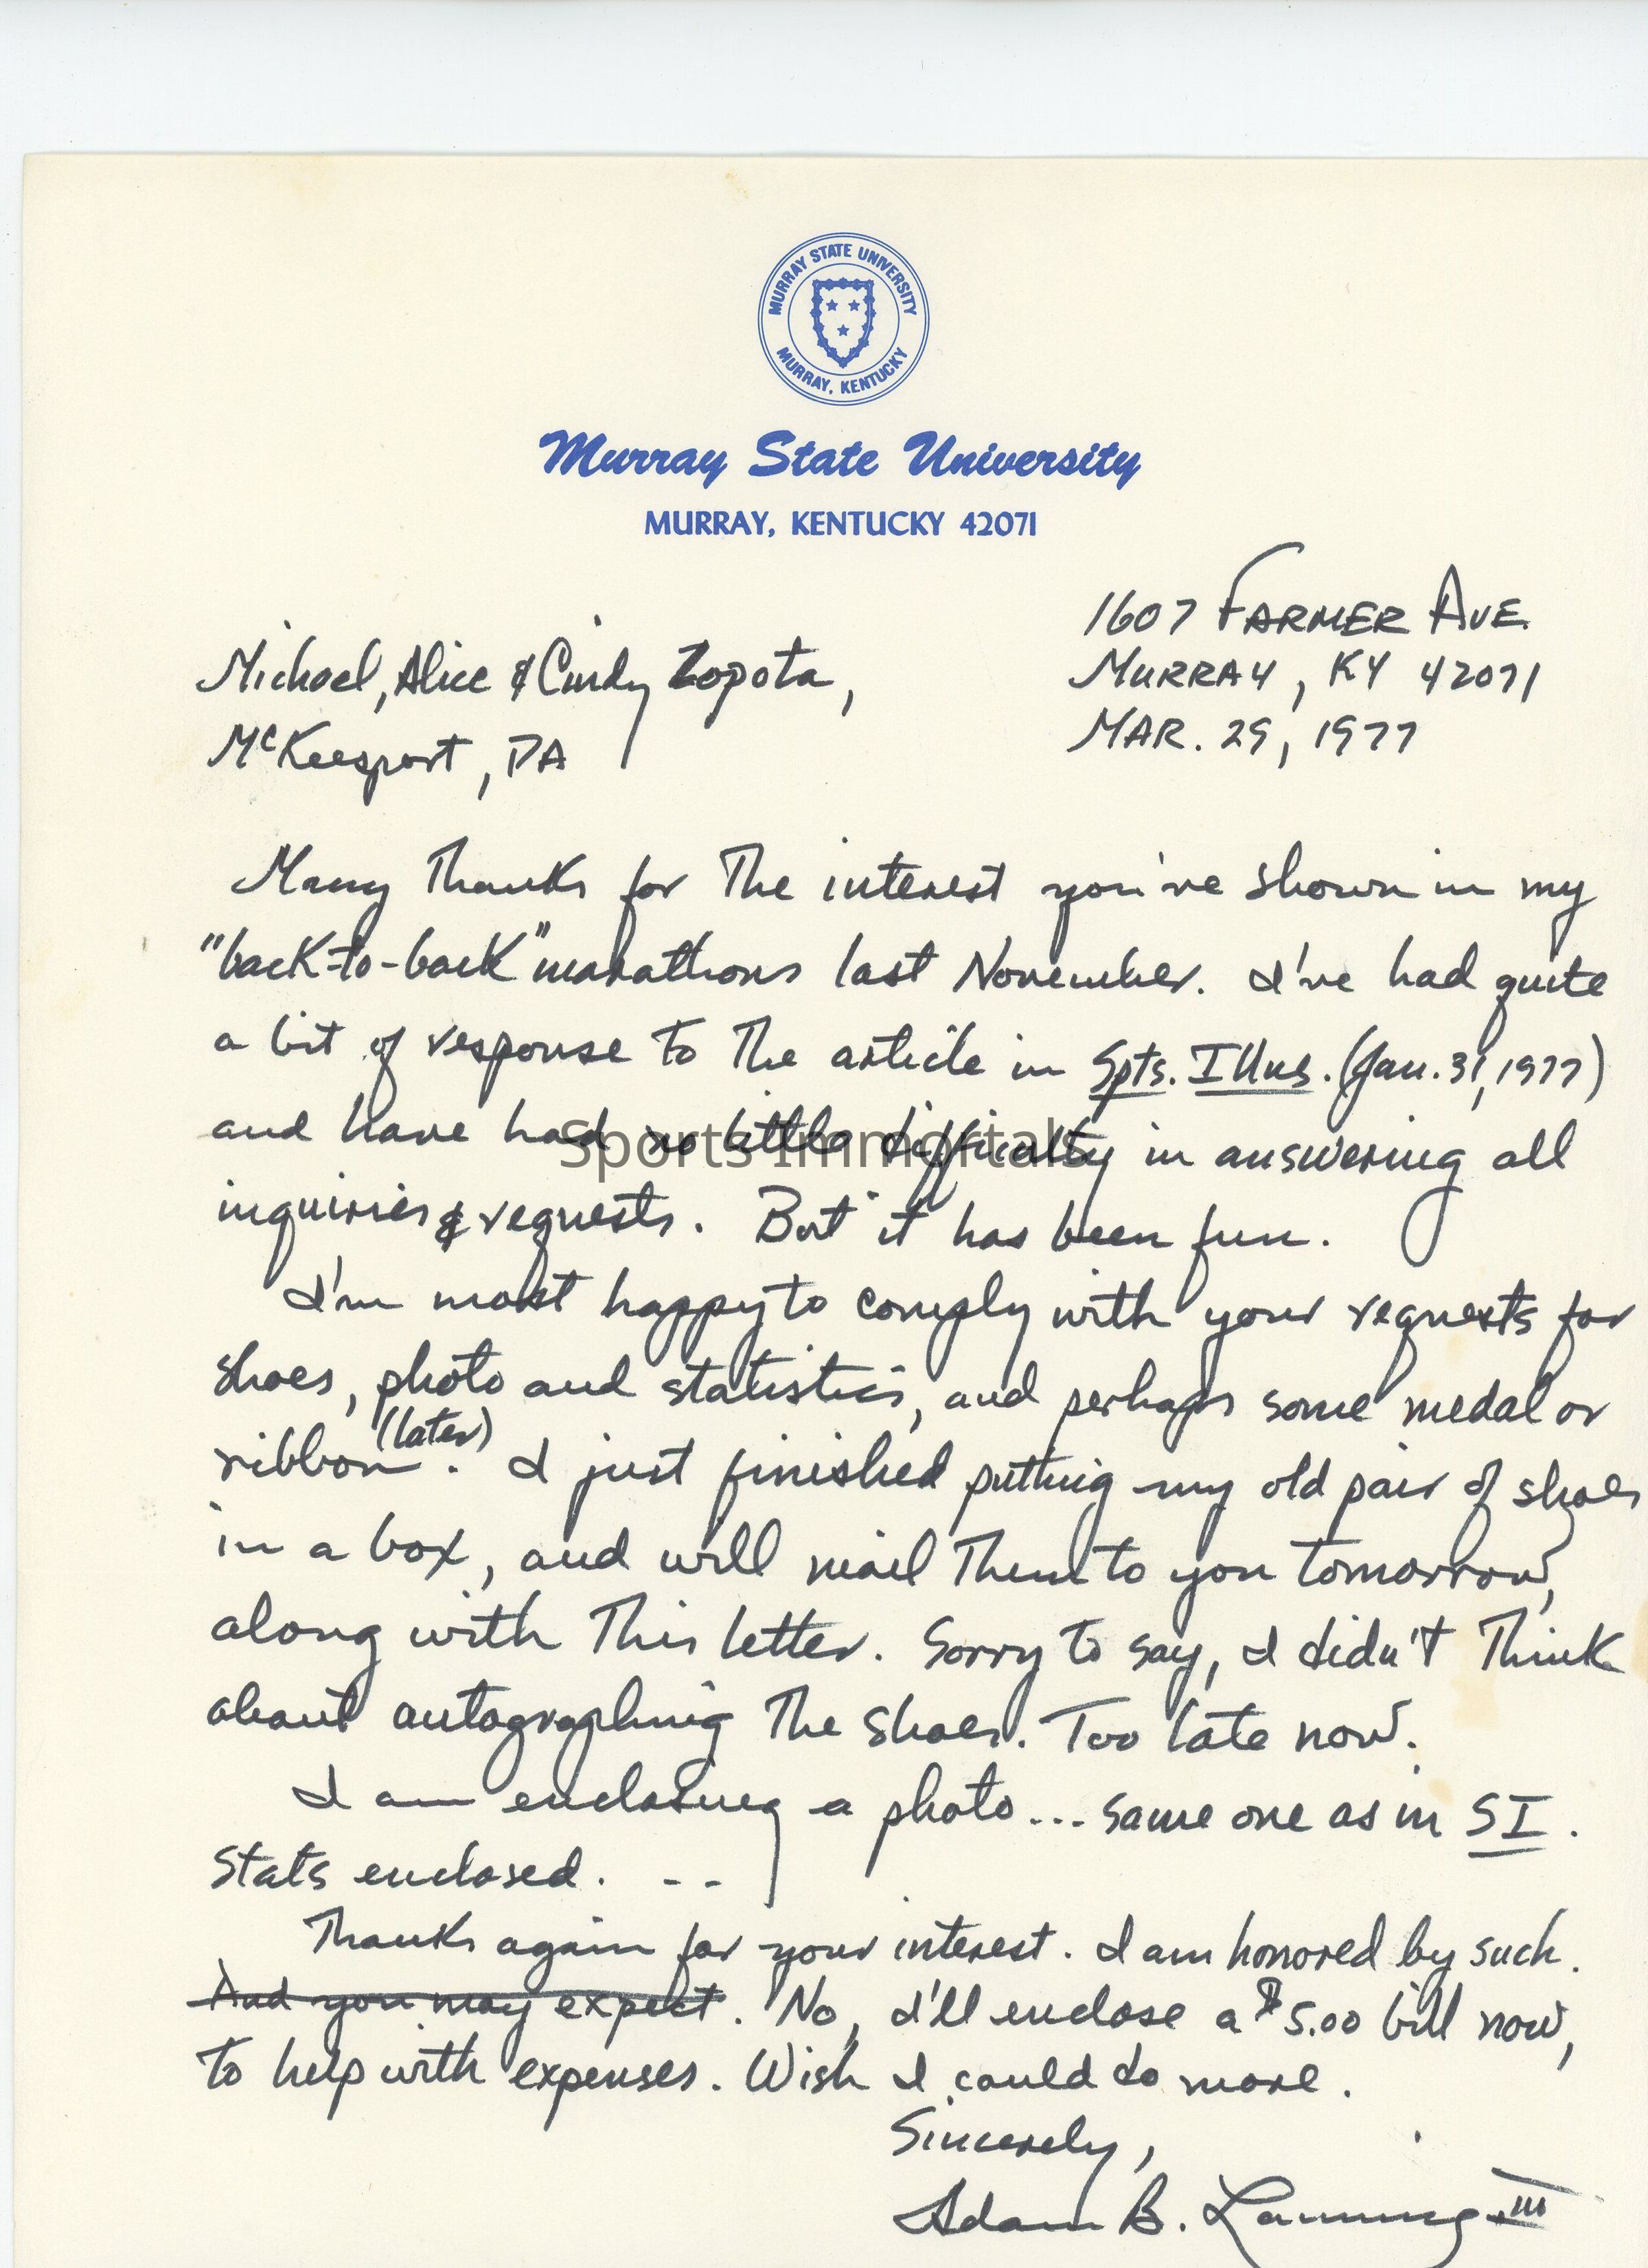 MURRAY STATE UNIVERSITY
MURRAY, KENTUCKY
Murray State University
MURRAY, KENTUCKY 42071
1607 FARMER AVE.
MURRAY, KY 42071
MAR. 29, 1977
Michael, Alice & Cindy Zopota,
McKeesport, PA
Many Thanks for The interest you've shown in my
"back-to-back" marathons last November. I've had quite
a bit of response to The article in Spts. Illus. (Jan. 31, 1977)
and have had no little difficulty in answering all
Sports Immortals
inquiries & requests. But it has been fun.
I'm most happy to comply with your requests for
shoes, photo and statistics, and perhaps some medal or
ribbon (later). I just finished putting my old pair of shoes
in a box, and will mail Them to you tomorrow,
along with This letter. Sorry to say, I didn't Think
about autographing The shoes. Too late now.
I am enclosing a photo... same one as in SI.
Stats enclosed. --
Thanks again for your interest. I am honored by such.
And you may expect. No, I'll enclose a $5.00 bill now,
to help with expenses. Wish I could do more.
Sincerely,
Adam B. Lanning III